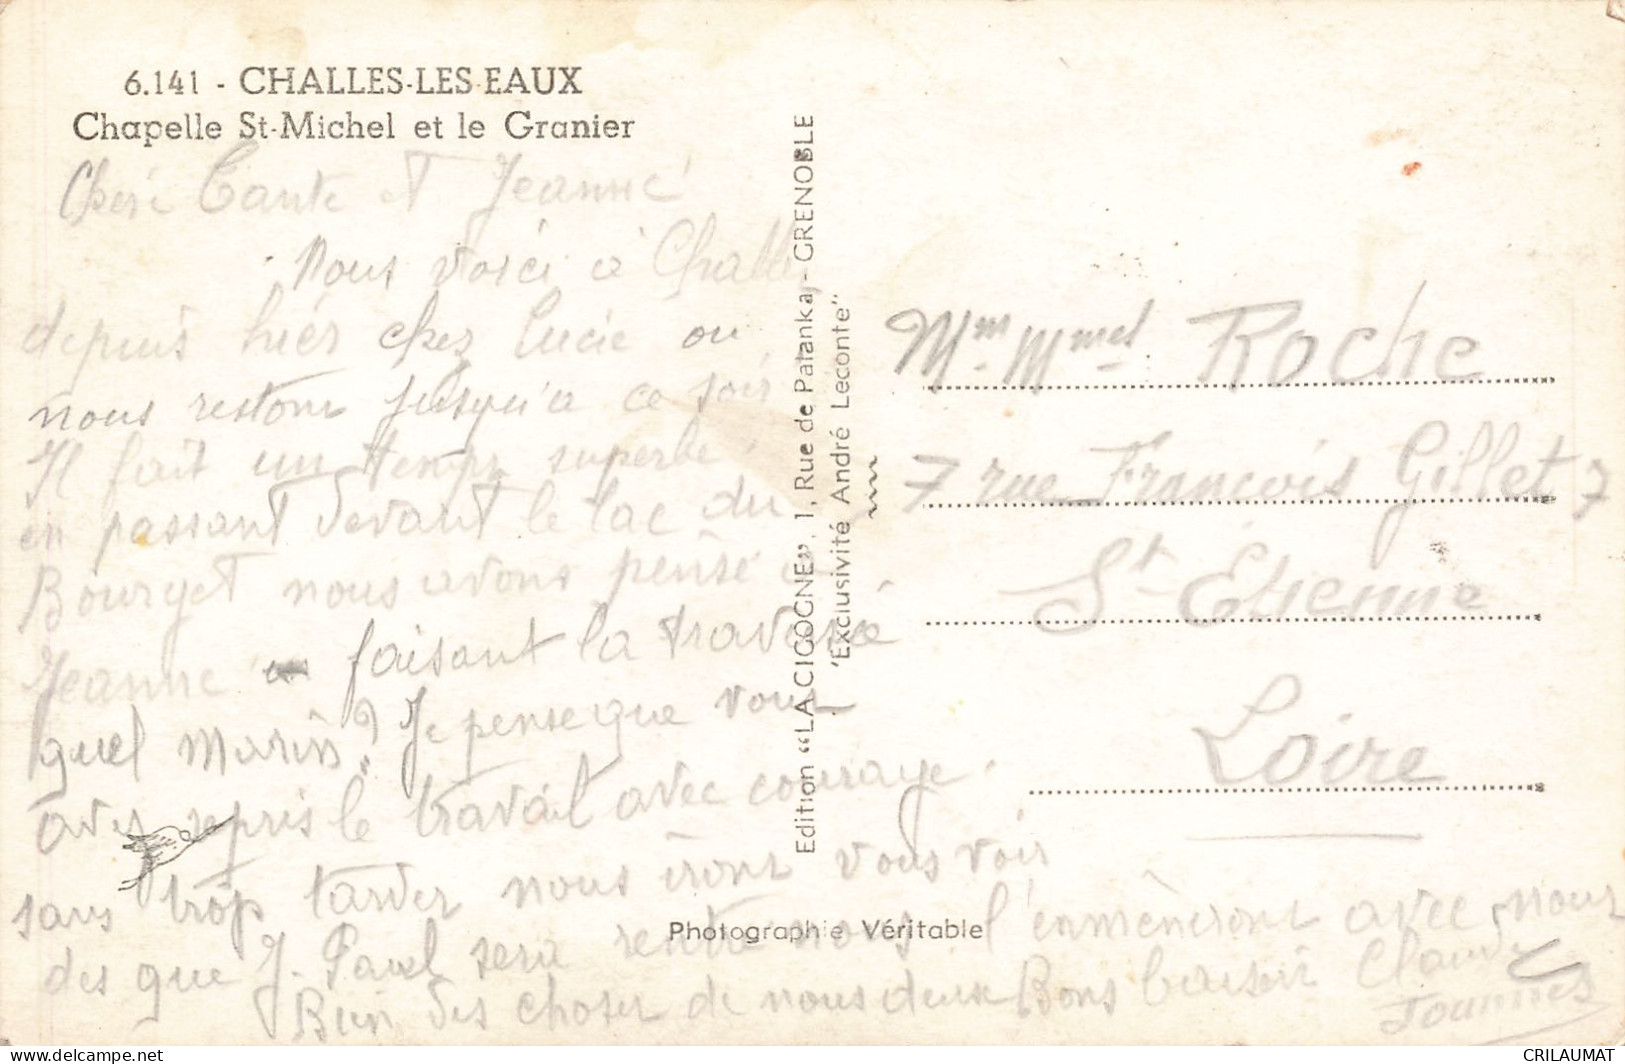 6.141 - CHALLES-LES-EAUX
Chapelle St-Michel et le Granier
Chère Tante et Jeanne
Nous voici à Challes
depuis hièr chez Lucie ou
nous restont jusqu'a ce soir
Il fait un temps superbe
en passant devant le lac du
Bourget nous avons pensé a
Jeanne faisant la traversé
quel marin ? Je pense que vous
avez repris le travail avec courage.
sans trop tarder nous iront vous voir
des que J. Paul sera rentré nous l'enmèneront avec nous
Bien des choses de nous deux Bons baisers Claude
Joannes
Edition "LA CICOGNE", 1, Rue de Palanka - GRENOBLE
"Exclusivité André Leconte"
Photographie Véritable
Mme Roche
7 rue François Gillet 7
St Étienne
Loire
CRILAUMAT